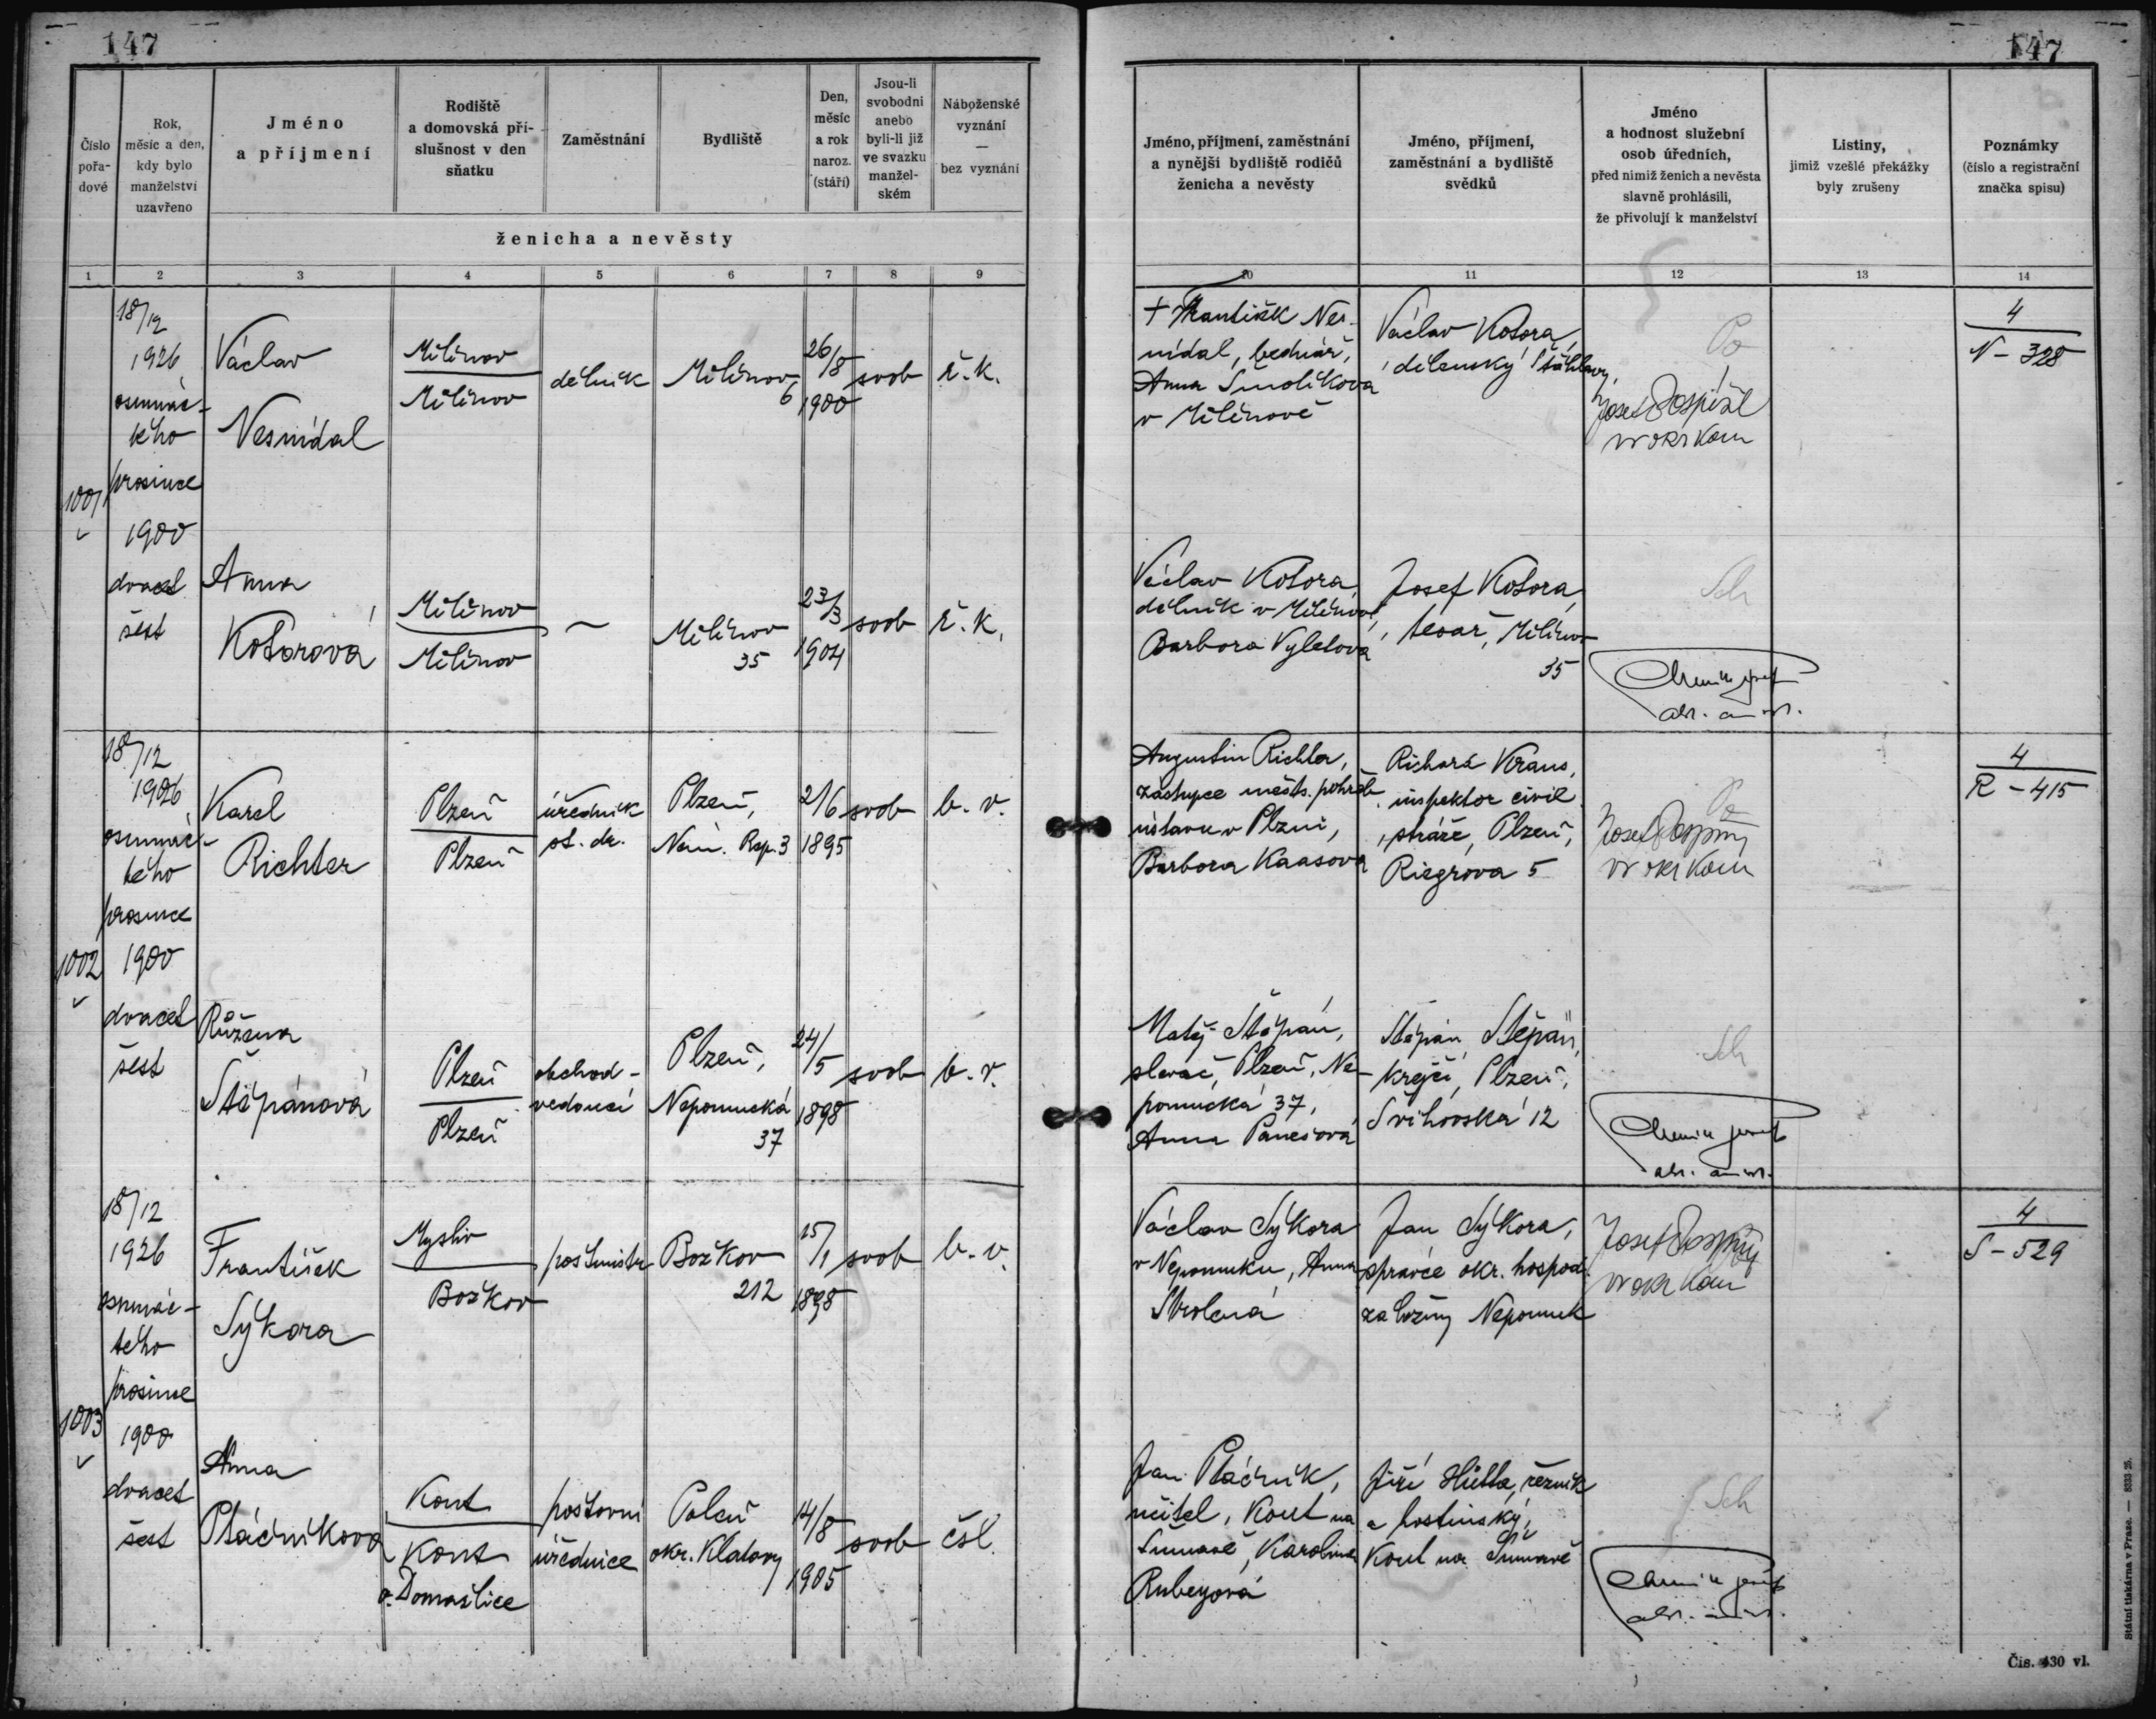 147
147
Číslo pořa- dové
Rok, měsíc a den, kdy bylo manželství uzavřeno
Jméno a příjmení
Rodiště a domovská pří- slušnost v den sňatku
Zaměstnání
Bydliště
Den, měsíc a rok naroz. (stáří)
Jsou-li svobodni anebo byli-li již ve svazku manžel- ském
Náboženské vyznání — bez vyznání
ženicha a nevěsty
Jméno, příjmení, zaměstnání a nynější bydliště rodičů ženicha a nevěsty
Jméno, příjmení, zaměstnání a bydliště svědků
Jméno a hodnost služební osob úředních, před nimiž ženich a nevěsta slavně prohlásili, že přivolují k manželství
Listiny, jimiž vzešlé překážky byly zrušeny
Poznámky (číslo a registrační značka spisu)
1 2 3 4 5 6 7 8 9 10 11 12 13 14
1001
18/12
1926
osmnác-
tého
prosince
1900
dvacet
šest
Václav
Nesnídal
Milínov
Milínov
dělník
Milínov
6
26/8
1900
svob
ř. k.
+ František Nes-
nídal, bednář,
Anna Smolíková
v Milínově
Václav Kotora,
dělenský Šťáhlavy,
Po
Josef Pospíšil
4
N - 328
Anna
Kotorová
Milínov
Milínov
Milínov
35
23/3
1904
svob
ř. k.
Václav Kotora,
dělník v Milínově,
Barbora Vyletová
Josef Kotora,
tesař, Milínov
35
Sch
1002
18/12
1926
osmnác-
tého
prosince
1900
dvacet
šest
Karel
Richter
Plzeň
Plzeň
úředník
st. dr.
Plzeň,
Nám. Rep. 3
21/6
1895
svob
b. v.
Augustin Richter,
zástupce městs. pohřeb.
ústavu v Plzni,
Barbora Kaasova
Richard Kraus,
inspektor civil.
stráže, Plzeň,
Riegrova 5
Po
4
R - 415
Růžena
Štěpánová
Plzeň
Plzeň
obchod-
vedoucí
Plzeň,
Nepomucká
37
24/5
1898
svob
b. v.
Matěj Štěpán,
slevač, Plzeň, Ne-
pomucká 37,
Anna Panešová
Štěpán Štěpán,
krejčí, Plzeň,
Švihovská 12
Sch
1003
18/12
1926
osmnác-
tého
prosince
1900
dvacet
šest
František
Sýkora
Mysliv
Božkov
poštmistr
Božkov
212
15/1
1898
svob
b. v.
Václav Sýkora
v Nepomuku, Anna
Jan Sýkora,
správce okr. hospod.
záložny Nepomuk
4
S - 529
Anna
Ptáčníkova
Kout
Kout
o. Domažlice
poštovní
úřednice
Poleň
okr. Klatovy
14/8
1905
svob
čsl.
Jan Ptáčník,
učitel, Kout na
Šumavě, Karolina
Rubeyová
Jiří Hütta, řezník
a hostinský,
Kout na Šumavě
Sch
Státní tiskárna v Praze. — 8333 25.
Čís. 430 vl.